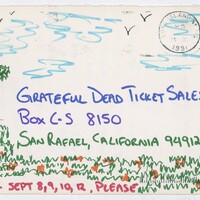 1991
GRATEFUL DEAD TICKET SALES
BOX C-S 8150
SAN RAFAEL, CALIFORNIA 94912
SEPT 8, 9, 10, 12, PLEASE